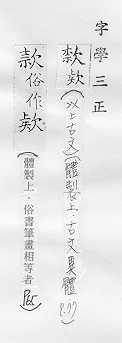 字學三正
欵(以上古文)(體製上.古文異體
款俗作欵(體製上.俗書筆畫相等者)